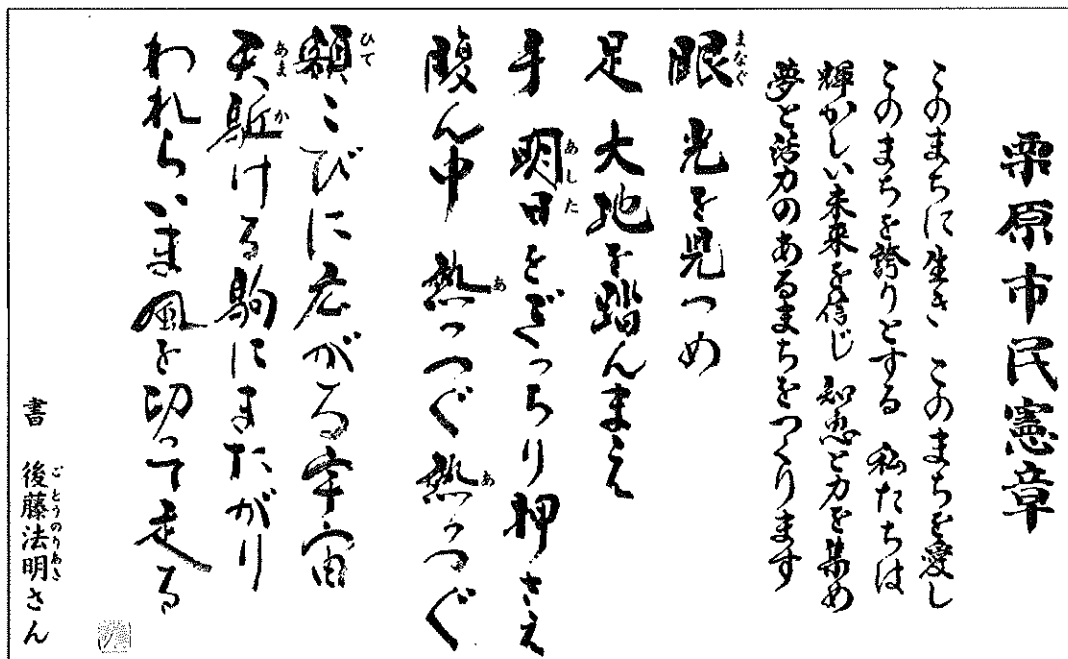 栗原市民憲章
このまちに生き このまちを愛し
このまちを誇りとする 私たちは
輝かしい未来を信じ 知恵と力を集め
夢と活力のあるまちをつくります
眼 光を見つめ
まなぐ
足 大地を踏んまえ
手 明日をぎっちり押さえ
あした
腹ん中 熱つつぐ熱つつぐ
あ あ
額こびに広がる宇宙
ひて
天駈ける駒にまたがり
あま か
われらいま風を切って走る
書 後藤法明さん
ごとうのりあき